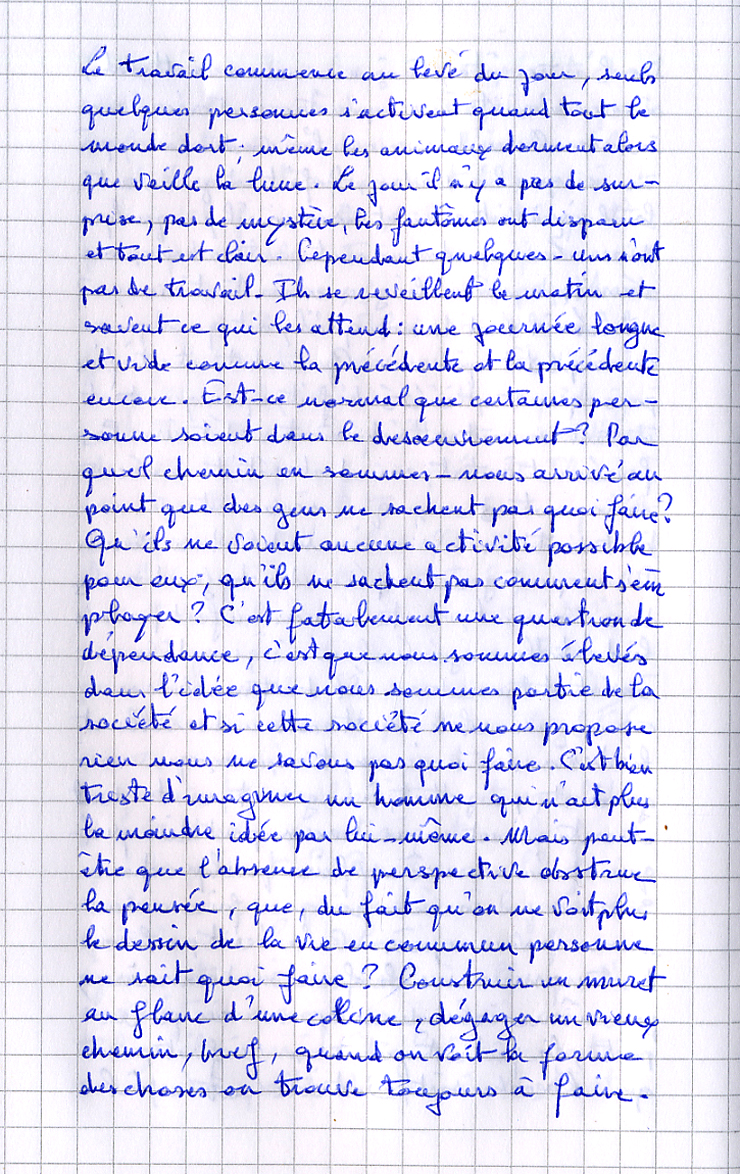 Le travail commence au levé du jour, seuls
quelques personnes s'activent quand tout le
monde dort ; même les animaux dorment alors
que veille la lune. Le jour il n'y a pas de sur-
prise, pas de mystère, les fantômes ont disparu
et tout est clair. Cependant quelques-uns n'ont
pas de travail. Ils se reveillent le matin et
savent ce qui les attend : une journée longue
et vide comme la précédente et la précédente
encore. Est-ce normal que certaines per-
sonne soient dans le desoeuvrement ? Par
quel chemin en sommes-nous arrivé au
point que des gens ne sachent pas quoi faire ?
Qu'ils ne voient aucune activité possible
pour eux, qu'ils ne sachent pas comment s'em
ployer ? C'est fatalement une question de
dépendance, c'est que nous sommes élevés
dans l'idée que nous sommes partie de la
société et si cette société ne nous propose
rien nous ne savons pas quoi faire. C'est bien
triste d'imaginer un homme qui n'ait plus
la moindre idée par lui-même. Mais peut-
être que l'absence de perspective obstrue
la pensée, que, du fait qu'on ne voit plus
le dessin de la vie en commun personne
ne sait quoi faire ? Construire un muret
au flanc d'une colline, dégager un vieux
chemin, bref, quand on voit la forme
des choses on trouve toujours à faire.